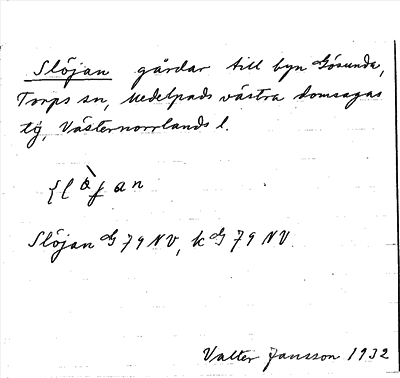 Slöjan gårdar till byn Gösunda,
Torps sn, Medelpads västra domsagas
tg, Västernorrlands l.
Slöjan G 79 NV, k G 79 NV.
Valter Jansson 1932